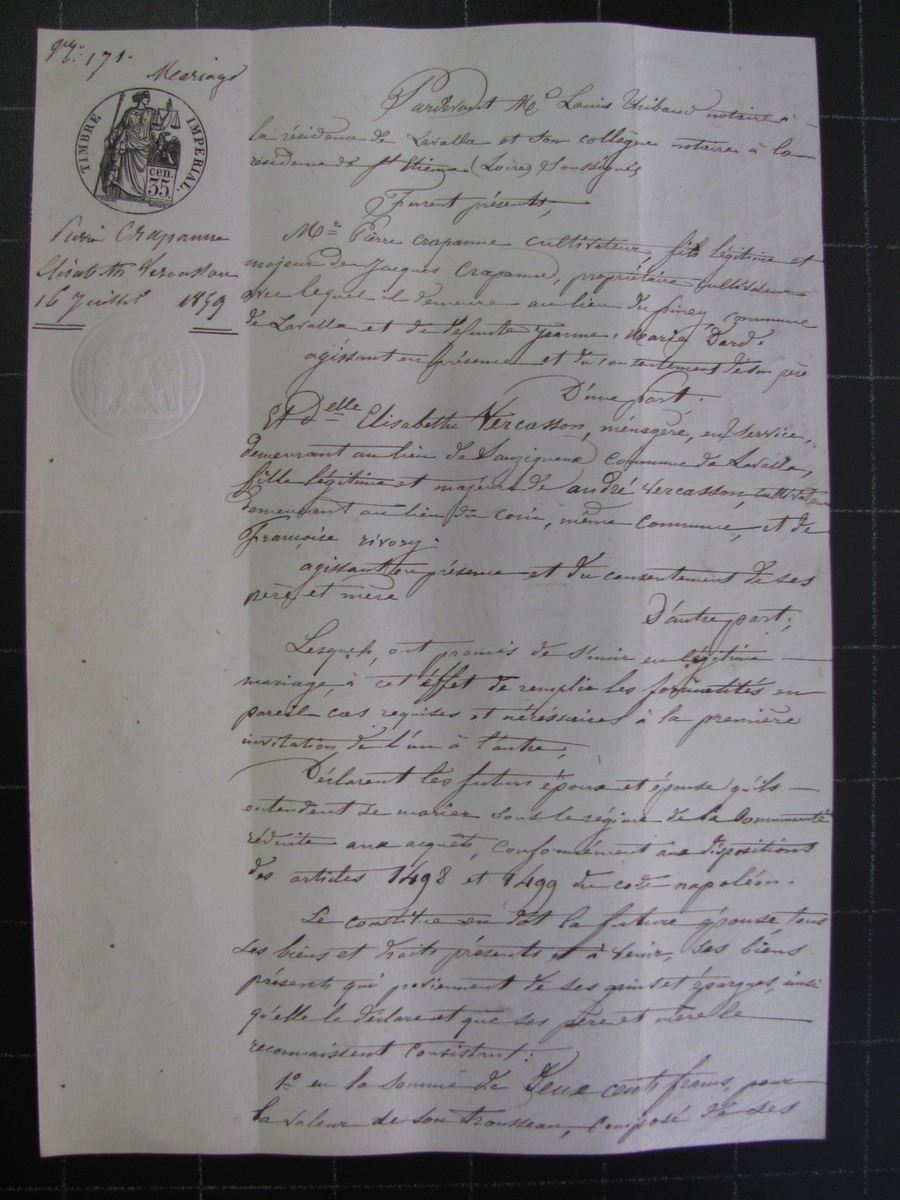 171.
Mariage
TIMBRE IMPERIAL.
35 cen.
Pierre Crapanne
Elisabeth Vercasson
16 Juillet 1859
Pardevant Me Louis Thibaud notaire à
la résidence de Lavalla et son collègue notaire à la
résidence de St Etienne (Loire) Soussignés
Furent présents,
Mr Pierre Crapanne cultivateur, fils légitime et
majeur de Jacques Crapanne, propriétaire cultivateur
avec lequel il demeure au lieu du piney, commune
de Lavalla et de défunte Jeanne Marie Dard.
agissant en présence et du consentement de son père
D'une part.
Et Delle Elisabeth Vercasson, ménagère, en service,
demeurant au lieu de commune de Lavalla,
fille légitime et majeure de andré Vercasson, cultivateur
demeurant au lieu du coin, même commune, et de
Françoise rivory.
agissant en présence et du consentement de ses
père et mère
D'autre part;
Lesquels, ont promis de s'unir en légitime
mariage, à cet effet de remplir les formalités en
pareil cas requises et nécéssaires à la première
invitation de l'un à l'autre;
Déclarent les futurs époux et épouse qu'ils
entendent se marier sous le régime de la Communauté
réduite aux acquêts, conformément aux dispositions
des articles 1498 et 1499 du code napoléon.
Se constitue en dot la future épouse tous
ses biens et droits présents et à venir, ses biens
présents qui proviennent de ses gains et épargnes, ainsi
qu'elle le déclare et que ses père et mère le
reconnaissent consistent:
1o en la somme de Deux cents francs, pour
la valeur de son trousseau, composé de ses